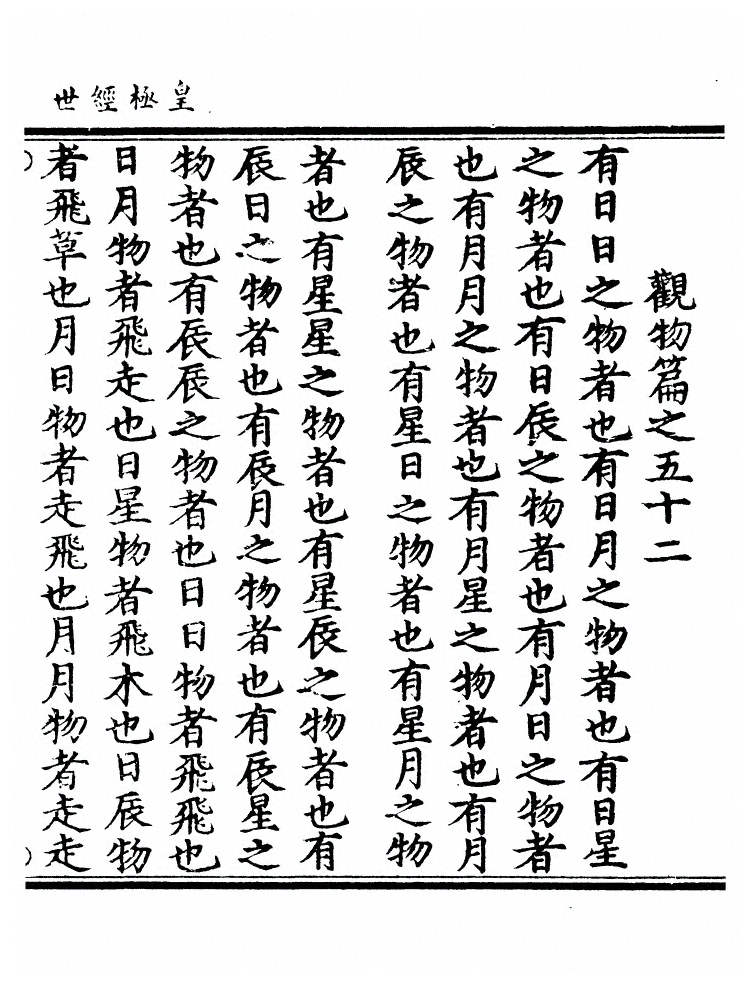 皇極經世
觀物篇之五十二
有日日之物者也有日月之物者也有日星
之物者也有日辰之物者也有月日之物者
也有月月之物者也有月星之物者也有月
辰之物者也有星日之物者也有星月之物
者也有星星之物者也有星辰之物者也有
辰日之物者也有辰月之物者也有辰星之
物者也有辰辰之物者也日日物者飛飛也
日月物者飛走也日星物者飛木也日辰物
者飛草也月日物者走飛也月月物者走走